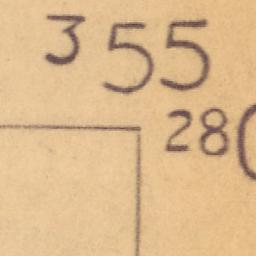 355
28